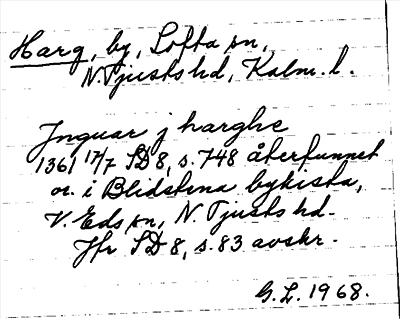 Harg, by, Lofta sn,
N. Tjusts hd, Kalm. l.
Jnguar j harghe
1361 17/7 SD 8, s. 748 återfunnet
or. i Blidstena bykista,
V. Eds sn, N. Tjusts hd.
Jfr SD 8, s. 83 avskr.
G. L. 1968.